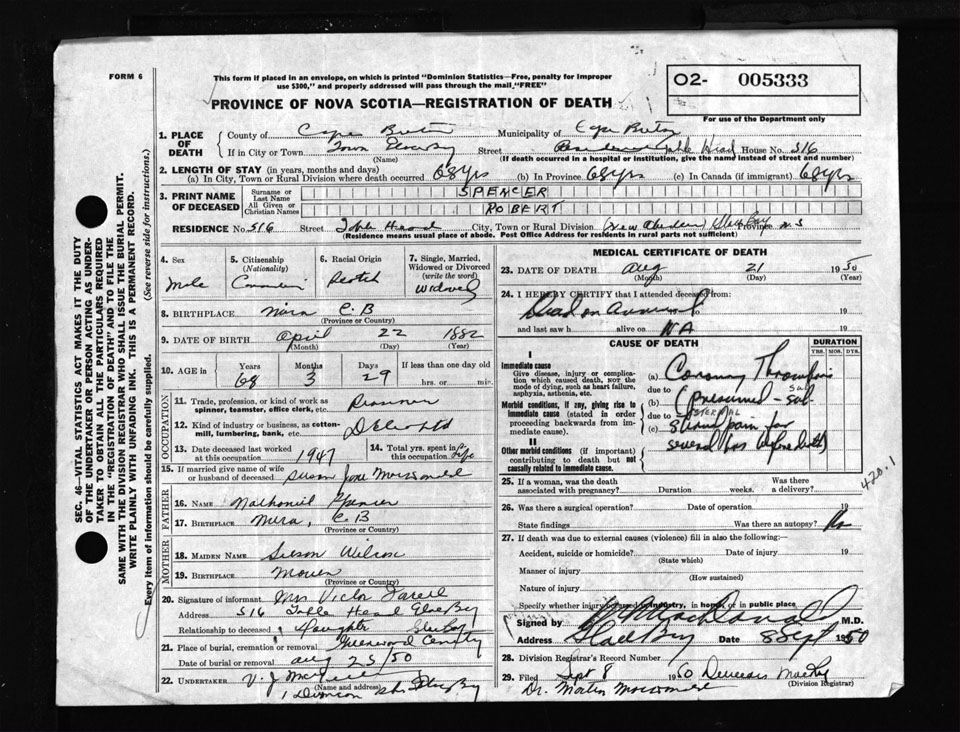 FORM 6
This form if placed in an envelope, on which is printed "Dominion Statistics—Free, penalty for improper
use $300," and properly addressed will pass through the mail, "FREE"
PROVINCE OF NOVA SCOTIA—REGISTRATION OF DEATH
O2- 005333
For use of the Department only
SEC. 46—VITAL STATISTICS ACT MAKES IT THE DUTY
OF THE UNDERTAKER OR PERSON ACTING AS UNDER-
TAKER TO OBTAIN ALL THE PARTICULARS REQUIRED
IN THE "REGISTRATION OF DEATH" AND TO FILE THE
SAME WITH THE DIVISION REGISTRAR WHO SHALL ISSUE THE BURIAL PERMIT.
WRITE PLAINLY WITH UNFADING INK. THIS IS A PERMANENT RECORD.
Every item of information should be carefully supplied. (See reverse side for instructions.)
1. PLACE OF DEATH County of Cape Breton Municipality of Cape Breton
If in City or Town Town Glace Bay Street Table Head House No. 516
(Name) (If death occurred in a hospital or institution, give the name instead of street and number)
2. LENGTH OF STAY (in years, months and days)
(a) In City, Town or Rural Division where death occurred 68 yrs (b) In Province 68 yrs (c) In Canada (if immigrant) 68 yrs
3. PRINT NAME OF DECEASED Surname or Last Name SPENCER
All Given or Christian Names ROBERT
RESIDENCE No. 516 Street Table Head City, Town or Rural Division (New Aberdeen) Glace Bay Province N S
(Residence means usual place of abode. Post Office Address for residents in rural parts not sufficient)
4. Sex 5. Citizenship (Nationality) 6. Racial Origin 7. Single, Married, Widowed or Divorced (write the word)
Male Canadian Scotch Widowed
8. BIRTHPLACE Mira C.B
(Province or Country)
9. DATE OF BIRTH April 22 1882
(Month) (Day) (Year)
10. AGE in Years Months Days If less than one day old
68 3 29 hrs. or min.
OCCUPATION
11. Trade, profession, or kind of work as
spinner, teamster, office clerk, etc.
12. Kind of industry or business, as cotton-
mill, lumbering, bank, etc.
13. Date deceased last worked at this occupation 1947 14. Total yrs. spent in this occupation
15. If married give name of wife or husband of deceased Susan Jane
FATHER
16. NAME Nathaniel Spencer
17. BIRTHPLACE Mira, C.B
(Province or Country)
MOTHER
18. MAIDEN NAME Susan Wilson
19. BIRTHPLACE
(Province or Country)
20. Signature of informant Mrs Victor
Address 516 Table Head Glace Bay
Relationship to deceased Daughter Glace Bay
21. Place of burial, cremation or removal Greenwood Cemetery
Date of burial or removal Aug 23/50
22. UNDERTAKER V. J.
(Name and address)
St. Glace Bay
MEDICAL CERTIFICATE OF DEATH
23. DATE OF DEATH Aug 21 1950
(Month) (Day) (Year)
24. I HEREBY CERTIFY that I attended deceased from:
Dead on Arrival 19
and last saw h alive on NA 19
CAUSE OF DEATH DURATION
YRS. MOS. DYS.
I
Immediate cause
Give disease, injury or complica-
tion which caused death, NOT the
mode of dying, such as heart failure,
asphyxia, asthenia, etc.
(a) Coronary Thrombosis
due to
Morbid conditions, if any, giving rise to
immediate cause (stated in order
proceeding backwards from im-
mediate cause).
(b) (presumed - sub
due to STERNAL
(c) pain for
II
Other morbid conditions (if important)
contributing to death but not
causally related to immediate cause.
several hrs before death)
420.1
25. If a woman, was the death
associated with pregnancy? Duration weeks. Was there a delivery?
26. Was there a surgical operation? Date of operation 19
State findings Was there an autopsy? No
27. If death was due to external causes (violence) fill in also the following:—
Accident, suicide or homicide? Date of injury 19
(State which)
Manner of injury
(How sustained)
Nature of injury
Specify whether injury occurred in industry, in home or in public place
Signed by M.D.
Address Glace Bay Date 8 Sept 1950
28. Division Registrar's Record Number
29. Filed Sept 8 1950
(Division Registrar)
Dr. Martin